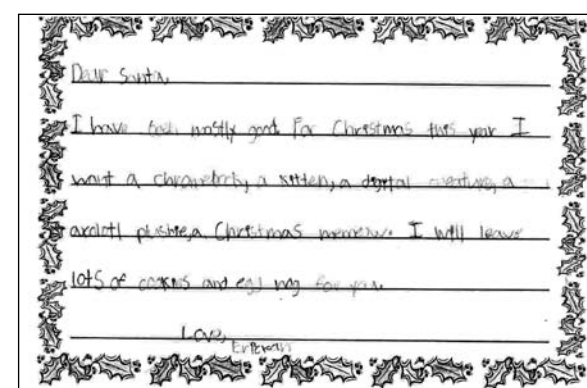 Dear Santa,
I have been mostly good. For Christmas this year I
want a chromebook, a kitten, a digital a
axolotl plushie, a Christmas I will leave
lots of cookies and egg nog for you.
Love,